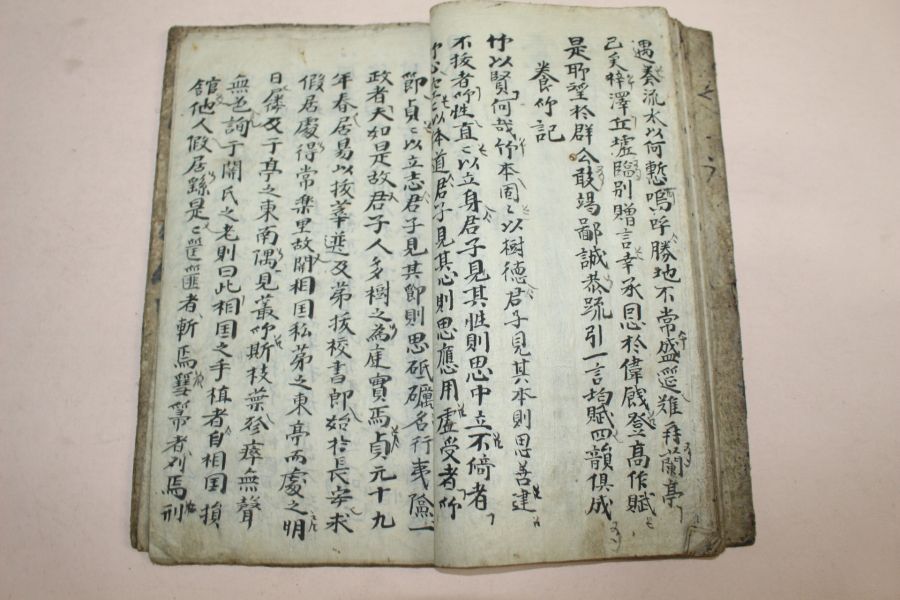 遇奏流水以何慙嗚呼勝地不常盛筵難再蘭亭
已矣梓澤丘墟臨別贈言幸承恩於偉餞登高作賦
是所望於群公敢竭鄙誠恭疏引一言均賦四韻俱成
養竹記
竹以賢何哉竹本固〻以樹德君子見其本則思善建
不拔者竹性直〻以立身君子見其性則思中立不倚者
竹心空〻以本道君子見其心則思應用虛受者竹
節貞〻以立志君子見其節則思砥礪名行夷險一
政者夫如是故君子人多樹之為庭實焉貞元十九
年春居易以拔萃選及第拔校書郎始於長安求
假居處得常樂里故開相国私第之東亭而處之明
日屨及于亭之東南偶見叢竹斯枝葉殄瘁無聲
無色詢于開氏之老則曰此相国之手植者自相国損
舘他人假居繇是〻筐篚者斬焉篲箒者刈焉刑